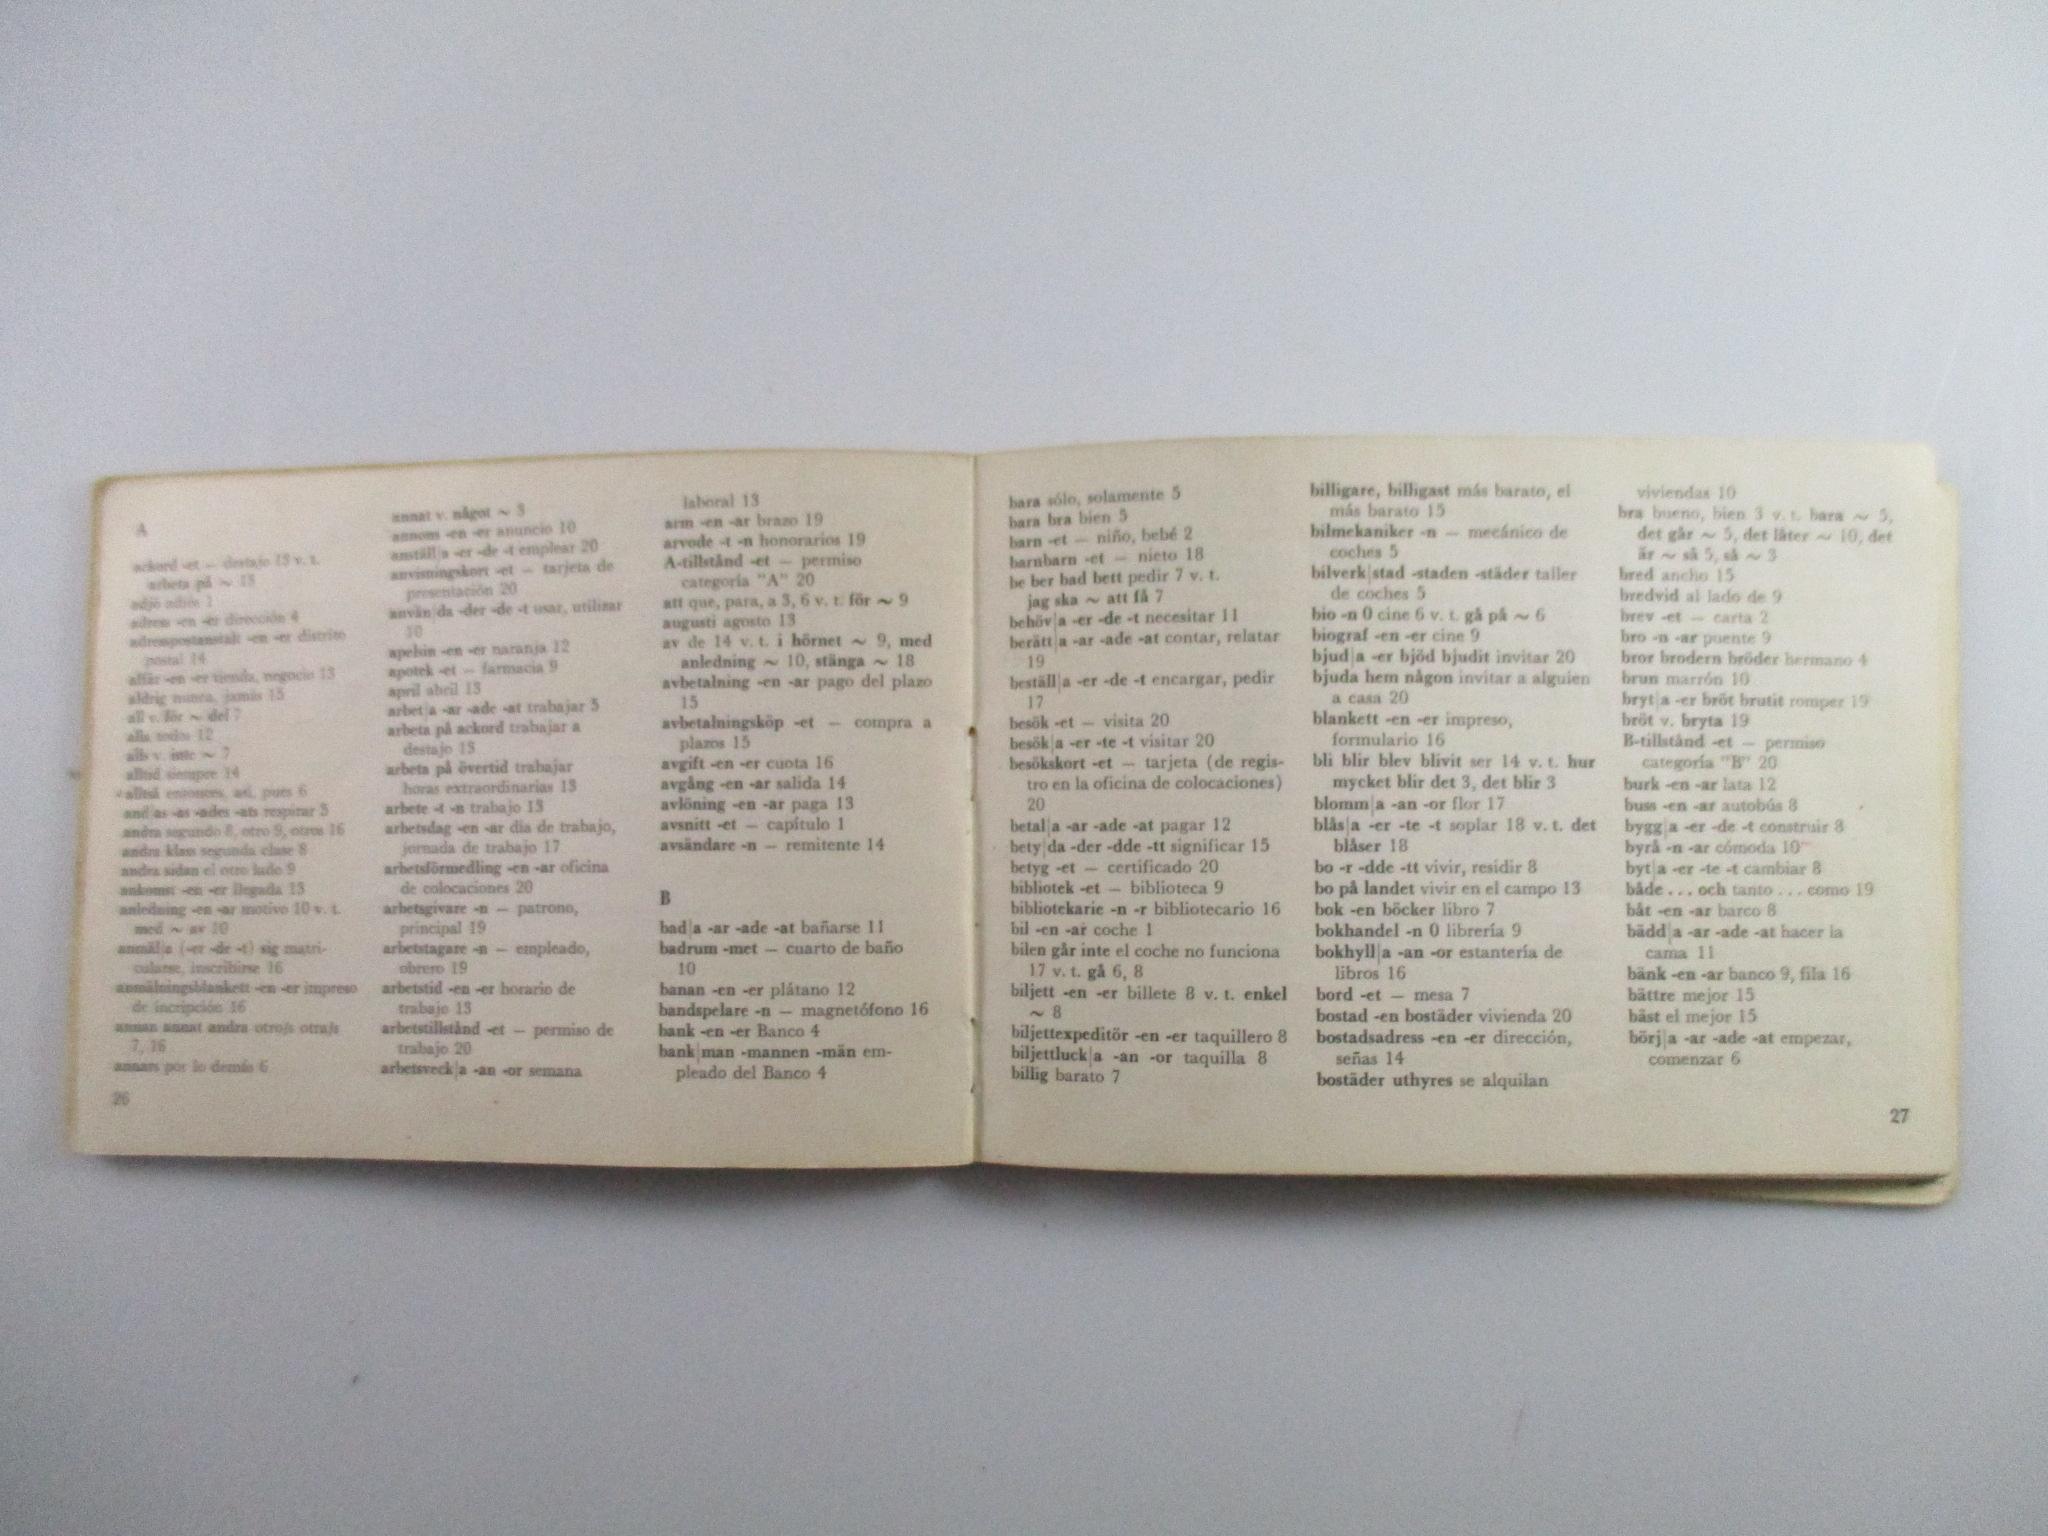 A
ackord -et — destajo 13 v. t.
arbeta på ~ 13
adjö adiós 1
adress -en -er dirección 4
adresspostanstalt -en -er distrito
postal 14
affär -en -er tienda, negocio 13
aldrig nunca, jamás 15
all v. för ~ del 7
alla todos 12
alls v. inte ~ 7
alltid siempre 14
alltså entonces, así, pues 6
and|as -as -ades -ats respirar 3
andra segundo 8, otro 9, otros 16
andra klass segunda clase 8
andra sidan el otro lado 9
ankomst -en -er llegada 13
anledning -en -ar motivo 10 v. t.
med ~ av 10
anmäl|a (-er -de -t) sig matri-
cularse, inscribirse 16
anmälningsblankett -en -er impreso
de incripción 16
annan annat andra otro/s otra/s
7, 16
annars por lo demás 6
26
annat v. något ~ 3
annons -en -er anuncio 10
anställ|a -er -de -t emplear 20
anvisningskort -et — tarjeta de
presentación 20
använ|da -der -de -t usar, utilizar
10
apelsin -en -er naranja 12
apotek -et — farmacia 9
april abril 13
arbet|a -ar -ade -at trabajar 5
arbeta på ackord trabajar a
destajo 13
arbeta på övertid trabajar
horas extraordinarias 13
arbete -t -n trabajo 13
arbetsdag -en -ar día de trabajo,
jornada de trabajo 17
arbetsförmedling -en -ar oficina
de colocaciones 20
arbetsgivare -n — patrono,
principal 19
arbetstagare -n — empleado,
obrero 19
arbetstid -en -er horario de
trabajo 13
arbetstillstånd -et — permiso de
trabajo 20
arbetsveck|a -an -or semana
laboral 13
arm -en -ar brazo 19
arvode -t -n honorarios 19
A-tillstånd -et — permiso
categoría "A" 20
att que, para, a 3, 6 v. t. för ~ 9
augusti agosto 13
av de 14 v. t. i hörnet ~ 9, med
anledning ~ 10, stänga ~ 18
avbetalning -en -ar pago del plazo
15
avbetalningsköp -et — compra a
plazos 15
avgift -en -er cuota 16
avgång -en -ar salida 14
avlöning -en -ar paga 13
avsnitt -et — capítulo 1
avsändare -n — remitente 14
B
bad|a -ar -ade -at bañarse 11
badrum -met — cuarto de baño
10
banan -en -er plátano 12
bandspelare -n — magnetófono 16
bank -en -er Banco 4
bank|man -mannen -män em-
pleado del Banco 4
bara sólo, solamente 5
bara bra bien 5
barn -et — niño, bebé 2
barnbarn -et — nieto 18
be ber bad bett pedir 7 v. t.
jag ska ~ att få 7
behöv|a -er -de -t necesitar 11
berätt|a -ar -ade -at contar, relatar
19
beställ|a -er -de -t encargar, pedir
17
besök -et — visita 20
besök|a -er -te -t visitar 20
besökskort -et — tarjeta (de regis-
tro en la oficina de colocaciones)
20
betal|a -ar -ade -at pagar 12
bety|da -der -dde -tt significar 15
betyg -et — certificado 20
bibliotek -et — biblioteca 9
bibliotekarie -n -r bibliotecario 16
bil -en -ar coche 1
bilen går inte el coche no funciona
17 v. t. gå 6, 8
biljett -en -er billete 8 v. t. enkel
~ 8
biljettexpeditör -en -er taquillero 8
biljettluck|a -an -or taquilla 8
billig barato 7
billigare, billigast más barato, el
más barato 15
bilmekaniker -n — mecánico de
coches 5
bilverk|stad -staden -städer taller
de coches 5
bio -n 0 cine 6 v. t. gå på ~ 6
biograf -en -er cine 9
bjud|a -er bjöd bjudit invitar 20
bjuda hem någon invitar a alguien
a casa 20
blankett -en -er impreso,
formulario 16
bli blir blev blivit ser 14 v. t. hur
mycket blir det 3, det blir 3
blomm|a -an -or flor 17
blås|a -er -te -t soplar 18 v. t. det
blåser 18
bo -r -dde -tt vivir, residir 8
bo på landet vivir en el campo 13
bok -en böcker libro 7
bokhandel -n 0 librería 9
bokhyll|a -an -or estantería de
libros 16
bord -et — mesa 7
bostad -en bostäder vivienda 20
bostadsadress -en -er dirección,
señas 14
bostäder uthyres se alquilan
viviendas 10
bra bueno, bien 3 v. t. bara ~ 5,
det går ~ 5, det låter ~ 10, det
är ~ så 5, så ~ 3
bred ancho 15
bredvid al lado de 9
brev -et — carta 2
bro -n -ar puente 9
bror brodern bröder hermano 4
brun marrón 10
bryt|a -er bröt brutit romper 19
bröt v. bryta 19
B-tillstånd -et — permiso
categoría "B" 20
burk -en -ar lata 12
buss -en -ar autobús 8
bygg|a -er -de -t construir 8
byrå -n -ar cómoda 10
byt|a -er -te -t cambiar 8
både . . . och tanto . . . como 19
båt -en -ar barco 8
bädd|a -ar -ade -at hacer la
cama 11
bänk -en -ar banco 9, fila 16
bättre mejor 15
bäst el mejor 15
börj|a -ar -ade -at empezar,
comenzar 6
27